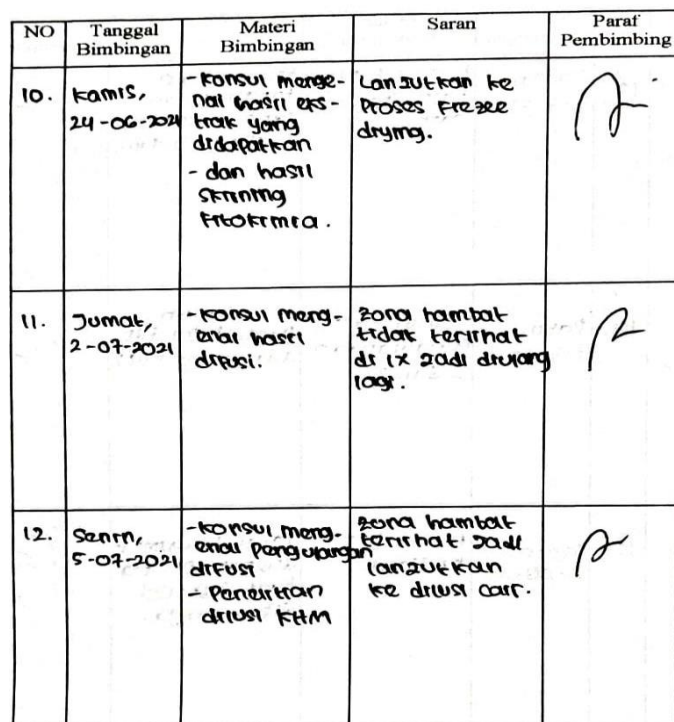 NO
Tanggal
Bimbingan
Materi
Bimbingan
Saran
Paraf
Pembimbing
10.
Kamis,
24-06-2021
- Konsul menge-
nai hasil eks-
trak yang
didapatkan
- dan hasil
skrining
fitokimia.
Lanjutkan ke
Proses Frezee
drying.
11.
Jumat,
2-07-2021
- Konsul meng-
enai hasil
difusi.
Zona hambat
tidak terlihat
di 1x jadi diulang
lagi.
12.
Senin,
5-07-2021
- Konsul meng-
enai Pengulangan
difusi
- Penelitian
dilusi KHM
Zona hambat
terlihat jadi
lanjutkan
ke dilusi cair.